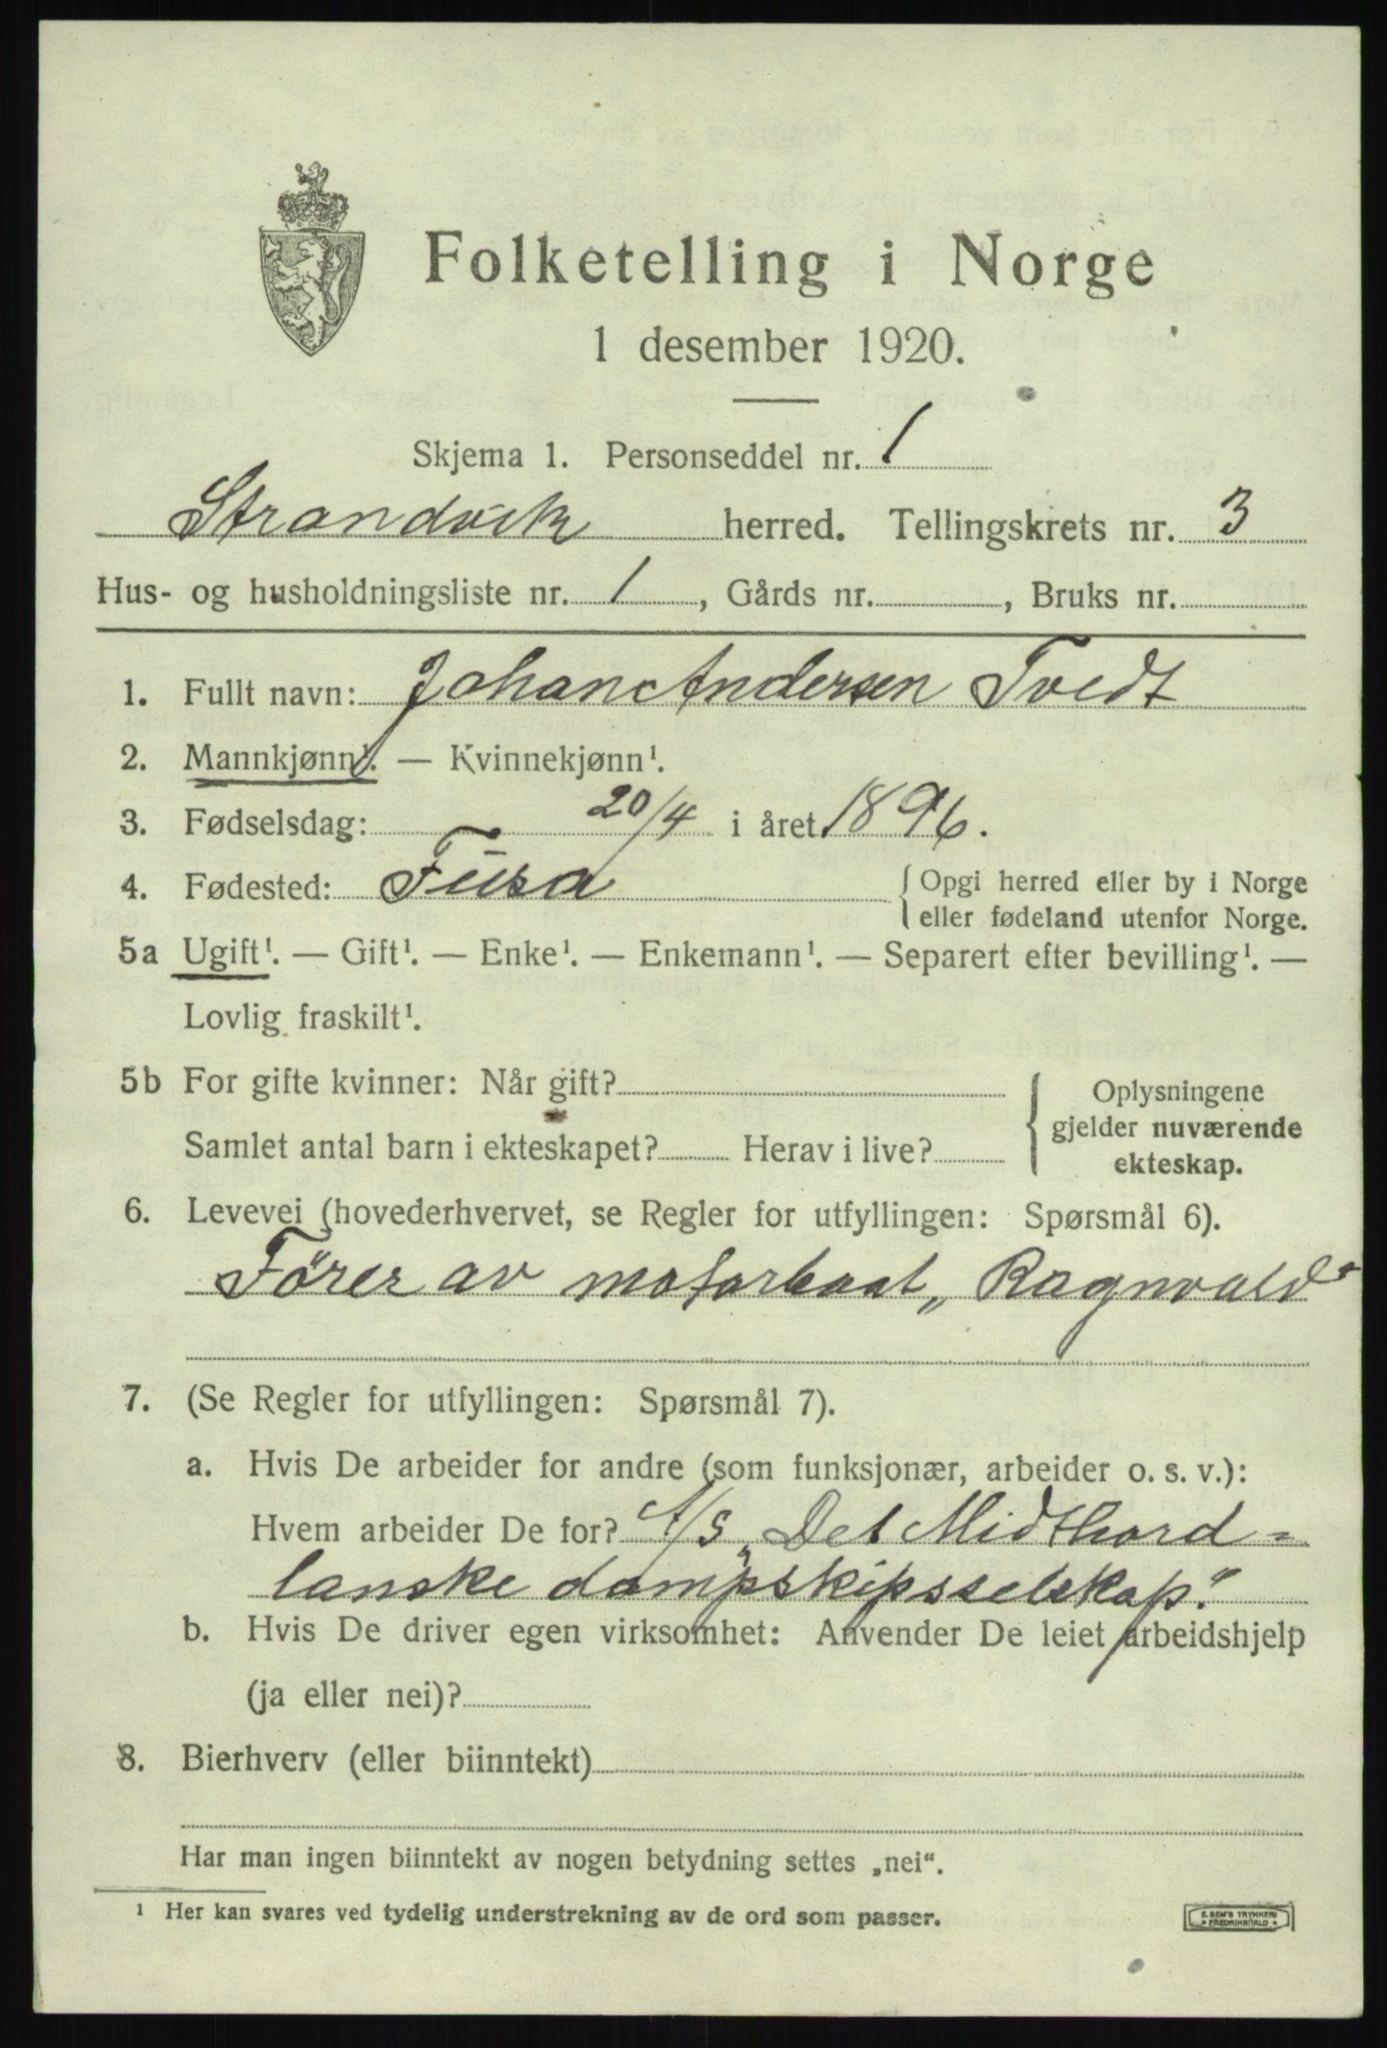 Folketelling i Norge
1 desember 1920.
Skjema 1. Personseddel nr. 1
Strandvik herred. Tellingskrets nr. 3
Hus- og husholdningsliste nr. 1, Gårds nr. , Bruks nr.
1. Fullt navn: Johan Andersen Tvedt
2. Mannkjønn¹. — Kvinnekjønn¹.
3. Fødselsdag: 20/4 i året 1896.
4. Fødested: Fusa { Opgi herred eller by i Norge
eller fødeland utenfor Norge.
5a Ugift¹. — Gift¹. — Enke¹. — Enkemann¹. — Separert efter bevilling¹. —
Lovlig fraskilt¹.
5b For gifte kvinner: Når gift?
Samlet antal barn i ekteskapet? Herav i live?
{ Oplysningene
gjelder nuværende
ekteskap.
6. Levevei (hovederhvervet, se Regler for utfyllingen: Spørsmål 6).
Fører av motorbaat „Ragnvald"
7. (Se Regler for utfyllingen: Spørsmål 7).
a. Hvis De arbeider for andre (som funksjonær, arbeider o. s. v.):
Hvem arbeider De for? A/S „Det Midthord=
lanske dampskipsselskap."
b. Hvis De driver egen virksomhet: Anvender De leiet arbeidshjelp
(ja eller nei)?
8. Bierhverv (eller biinntekt)
Har man ingen biinntekt av nogen betydning settes „nei".
¹ Her kan svares ved tydelig understrekning av de ord som passer.
E. SEM'S TRYKKERI
FREDRIKSHALD